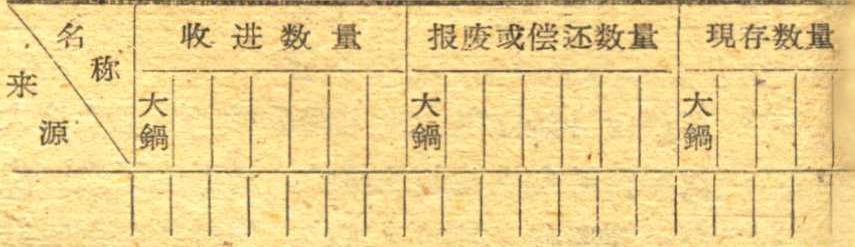 名称
来源
收进数量
报废或偿还数量
现存数量
大鍋
大鍋
大鍋